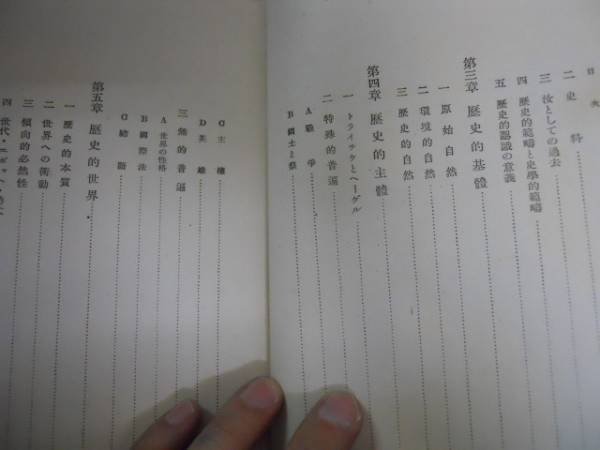 目次
二 史料
三 汝としての過去
四 歷史的範疇と史學的範疇
五 歷史的認識の意義
第三章 歷史的基體
一 原始自然
二 環境的自然
三 歷史的自然
第四章 歷史的主體
一 トライチケとヘーゲル
二 特殊的普遍
A 戰爭
B 國土と祭
C 主權
D 英雄
三 無的普遍
A 世界の性格
B 國際法
C 總
第五章 歷史的世界
一 歷史的本質
二 世界への衝動
三 傾向的必然性
四 世代・